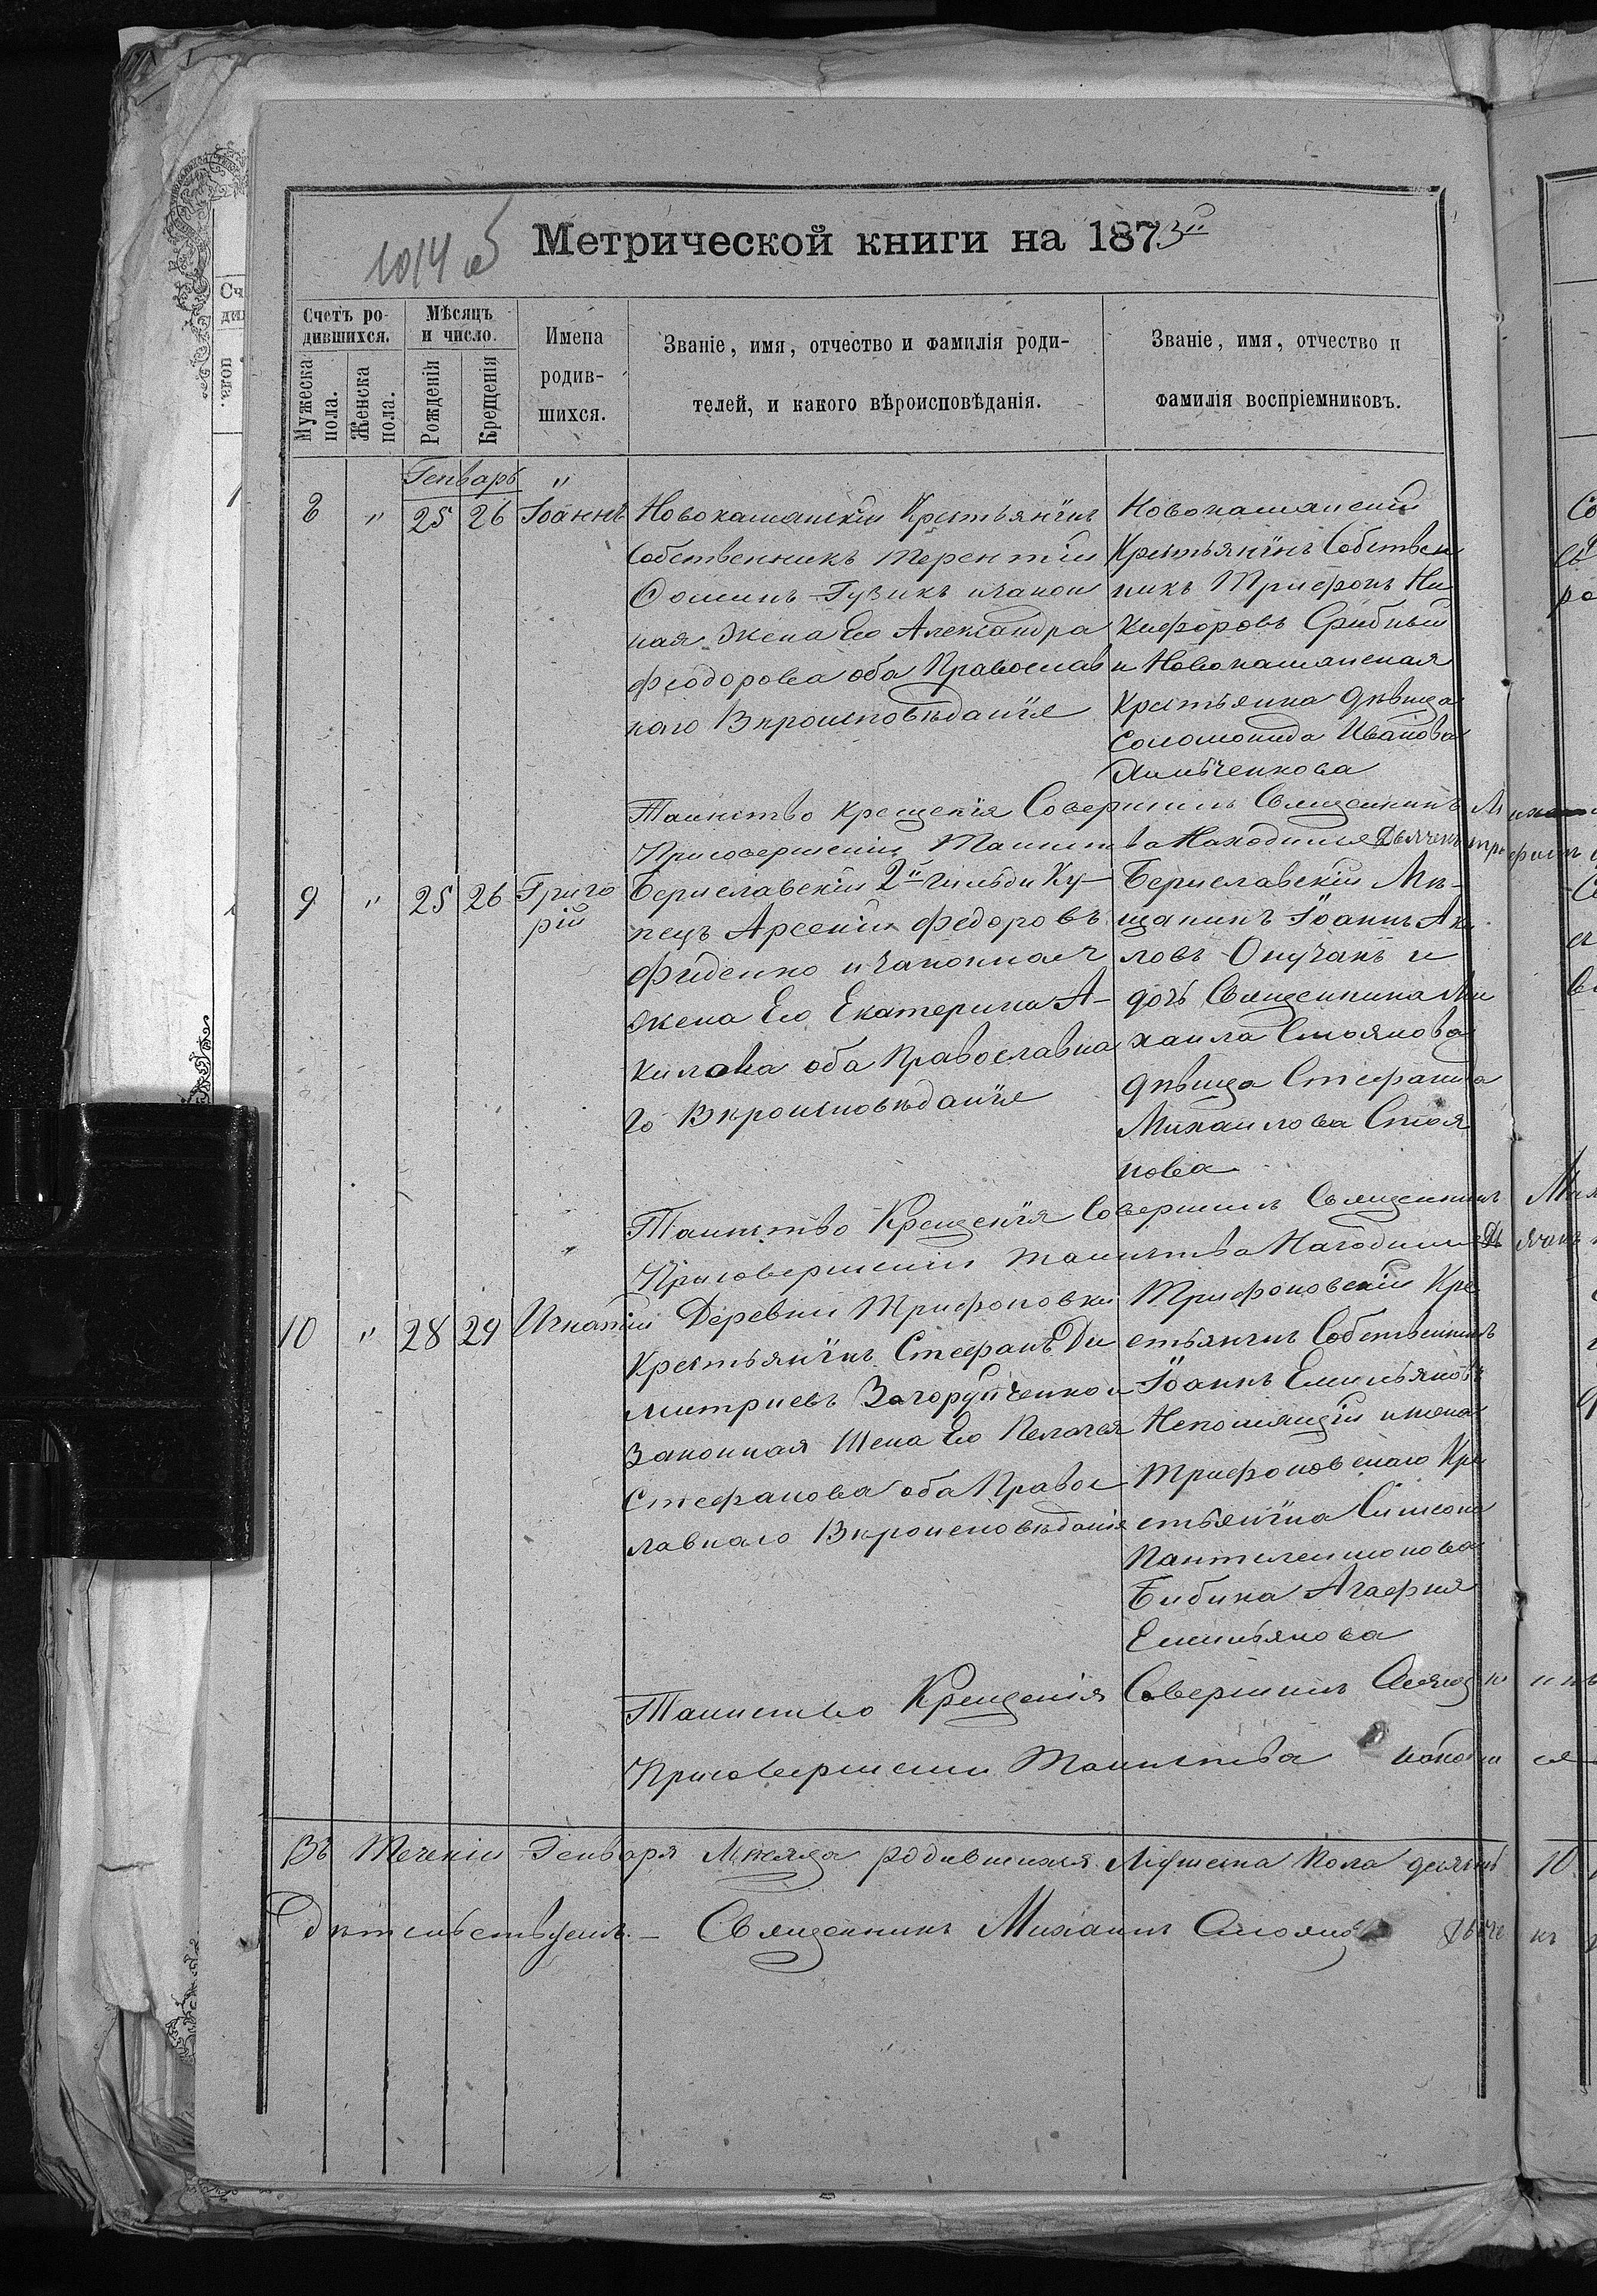 1014 об
Метрической книги на 1873й
Счетъ ро-
дившихся.
Мѣсяцъ
и число.
Имена
родив-
шихся.
Званіе, имя, отчество и фамилія роди-
телей, и какого вѣроисповѣданія.
Званіе, имя, отчество и
фамилія воспріемниковъ.
Мужеска
пола.
Женска
пола.
Рожденія
Крещенія
Генварь
"
8 " 25 26 Іоаннъ
Новокаманскій Крестьянинъ
Собственникъ Терентій
Фоминъ Гузикъ изакон
ная Жена Его Александра
Феодорова оба Православ
наго Вѣроисповѣданія
Новокаманский
Крестьянинъ Собствен
никъ Трифонъ Ни
кифоровъ Срибный
и Новокаманская
Крестьянка дѣвица
Соломонида Иванова
Таинство крещенія Совершилъ Священникъ
Присовершеніи Таинства Находился Дьячекъ
9 " 25 26 Григо
рій
Бериславскій 2й гильди Ку-
пецъ Арсеній Федоровъ
Фиденко изаконная
жена Его Екатерина А-
килова оба Православна
го Вѣроисповѣданія
Бериславскій Мѣ-
щанинъ Іоаннъ Аки
ловъ Онучакъ и
дочь Священника Ми
хаила Стоянова
дѣвица Стефанида
Михаилова Стоя
нова
Таинство Крещенія Совершилъ Священникъ
Присовершеніи таинства Находился
10 " 28 29 Игнатій
Деревни Трифоновки
Крестьянинъ Стефанъ Ди
митриевъ Загоруйченко и
Законная Жена Его Пелагея
Стефанова оба Правос
лавнаго Вѣроисповѣданія
Трифоновскій Кре
стьянинъ Собственникъ
Іоаннъ Емильяновъ
Непомящій ижена
Трифоновскаго Кре
стьянина Симеона
Пантилеимонова
Бибика Агафия
Емильянова
Таинство Крещенія Совершилъ
Присовершении Таинства
Въ Теченіи Генваря Мѣсяца родившихся Мужеска Пола десять 10
Священникъ Михаилъ Стояновъ